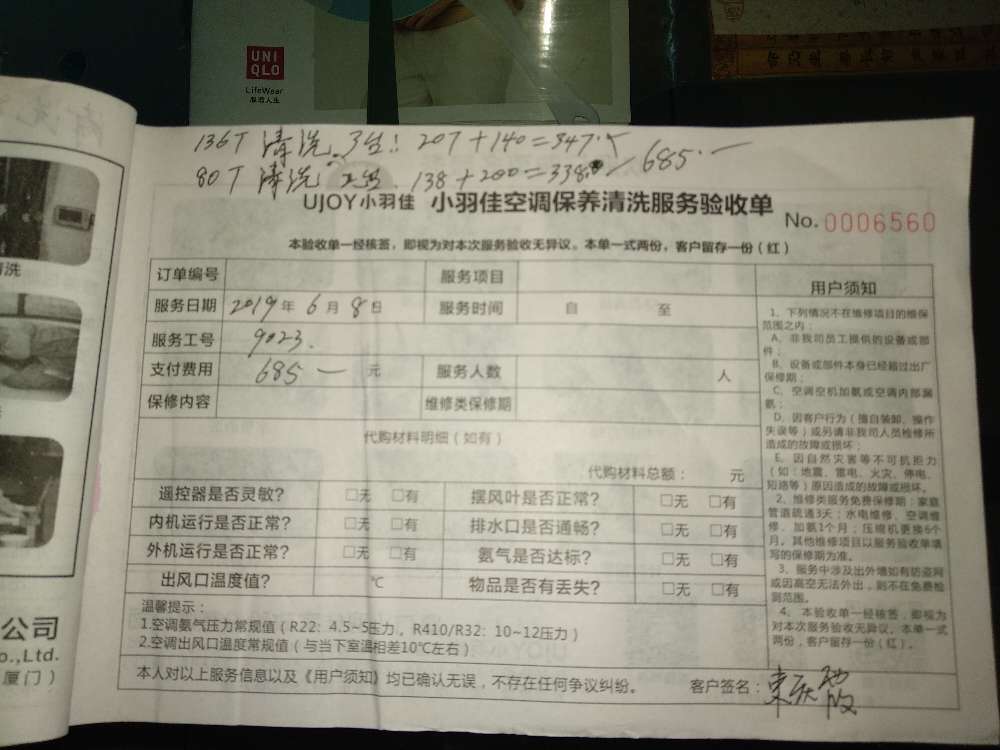 UNI
QLO
LifeWear
服适人生
136T 清洗 3台! 207+140=347.
80T 清洗 138+200=338. 685.一
UJOY小羽佳 小羽佳空调保养清洗服务验收单
No. 0006560
本验收单一经核签,即视为对本次服务验收无异议。本单一式两份,客户留存一份(红)
订单编号 服务项目
服务日期 2019年 6月 8日 服务时间 自 至
服务工号 9023.
支付费用 685一 元 服务人数 人
保修内容 维修类保修期
代购材料明细(如有)
代购材料总额: 元
遥控器是否灵敏? □无 □有 摆风叶是否正常? □无 □有
内机运行是否正常? □无 □有 排水口是否通畅? □无 □有
外机运行是否正常? □无 □有 氨气是否达标? □无 □有
出风口温度值? ℃ 物品是否有丢失? □无 □有
温馨提示:
1.空调氨气压力常规值(R22:4.5~5压力,R410/R32:10~12压力)
2.空调出风口温度常规值(与当下室温相差10℃左右)
本人对以上服务信息以及《用户须知》均已确认无误,不存在任何争议纠纷。 客户签名:
用户须知
1、下列情况不在维修项目的维保
范围之内:
A、非我司员工提供的设备或部
件;
B、设备或部件本身已经超过出厂
保修期;
C、空调空机加氨或空调内部漏
氨;
D、因客户行为(擅自装卸、操作
失误等)或另请非我司人员检修所
造成的故障或损坏;
E、因自然灾害等不可抗拒力
(如:地震、雷电、火灾、停电、
短路等)原因造成的故障或损坏。
2、维修类服务免费保修期:家庭
管道疏通3天;水电维修、空调维
修、加氨1个月;压缩机更换6个
月。其他维修项目以服务验收单填
写的保修期为准。
3、服务中涉及出外墙如有防盗网
或因高空无法外出,则不在免费检
测范围。
4、本验收单一经核签,即视为
对本次服务验收无异议。本单一式
两份,客户留存一份(红)。
清洗
公司
o.,Ltd.
厦门)